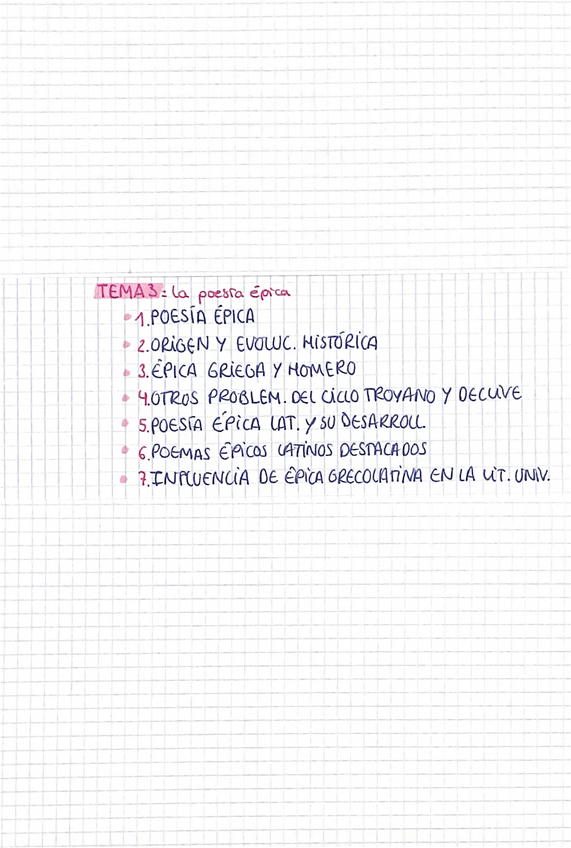 TEMA 3: la poesía épica
1. POESÍA ÉPICA
2. ORIGEN Y EVOLUC. HISTÓRICA
3. ÉPICA GRIEGA Y HOMERO
4. OTROS PROBLEM. DEL CICLO TROYANO Y DECLIVE
5. POESÍA ÉPICA LAT. Y SU DESARROLL.
6. POEMAS ÉPICOS LATINOS DESTACADOS
7. INFLUENCIA DE ÉPICA GRECOLATINA EN LA LIT. UNIV.